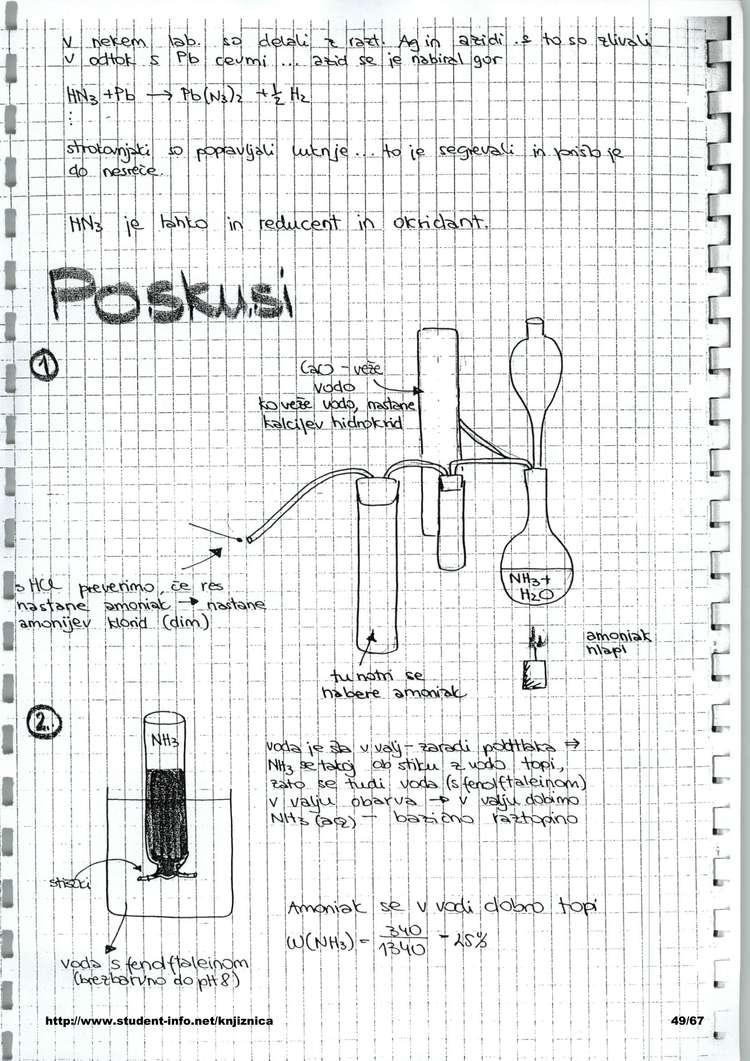 v nekem lab. so delali z razt. Ag in azidi.. & to so zlivali
v odtok s Pb cevmi ... azid se je nabiral gor
HN3 + Pb → Pb(N3)2 + ½ H2
⋮
strokovnjaki so popravljali luknje ... to je segrevali in prišlo je
do nesreče.
HN3 je lahko in reducent in oksidant.
Poskusi
1
CaO - veže
vodo
ko veže vodo, nastane
kalcijev hidroksid
s HCl preverimo, če res
nastane amoniak → nastane
amonijev klorid (dim)
NH3 +
H2O
amoniak
hlapi
tu notri se
nabere amoniak
2.
NH3
voda je šla v valj - zaradi podtlaka ⇒
NH3 se takoj ob stiku z vodo topi,
zato se tudi voda (s fenolftaleinom)
v valju obarva → v valju dobimo
NH3 (aq) - bazično raztopino
voda s fenolftaleinom
(brezbarvno do pH 8)
Amoniak se v vodi dobro topi
W(NH3) = 340/1340 - 25%
http://www.student-info.net/knjiznica
49/67